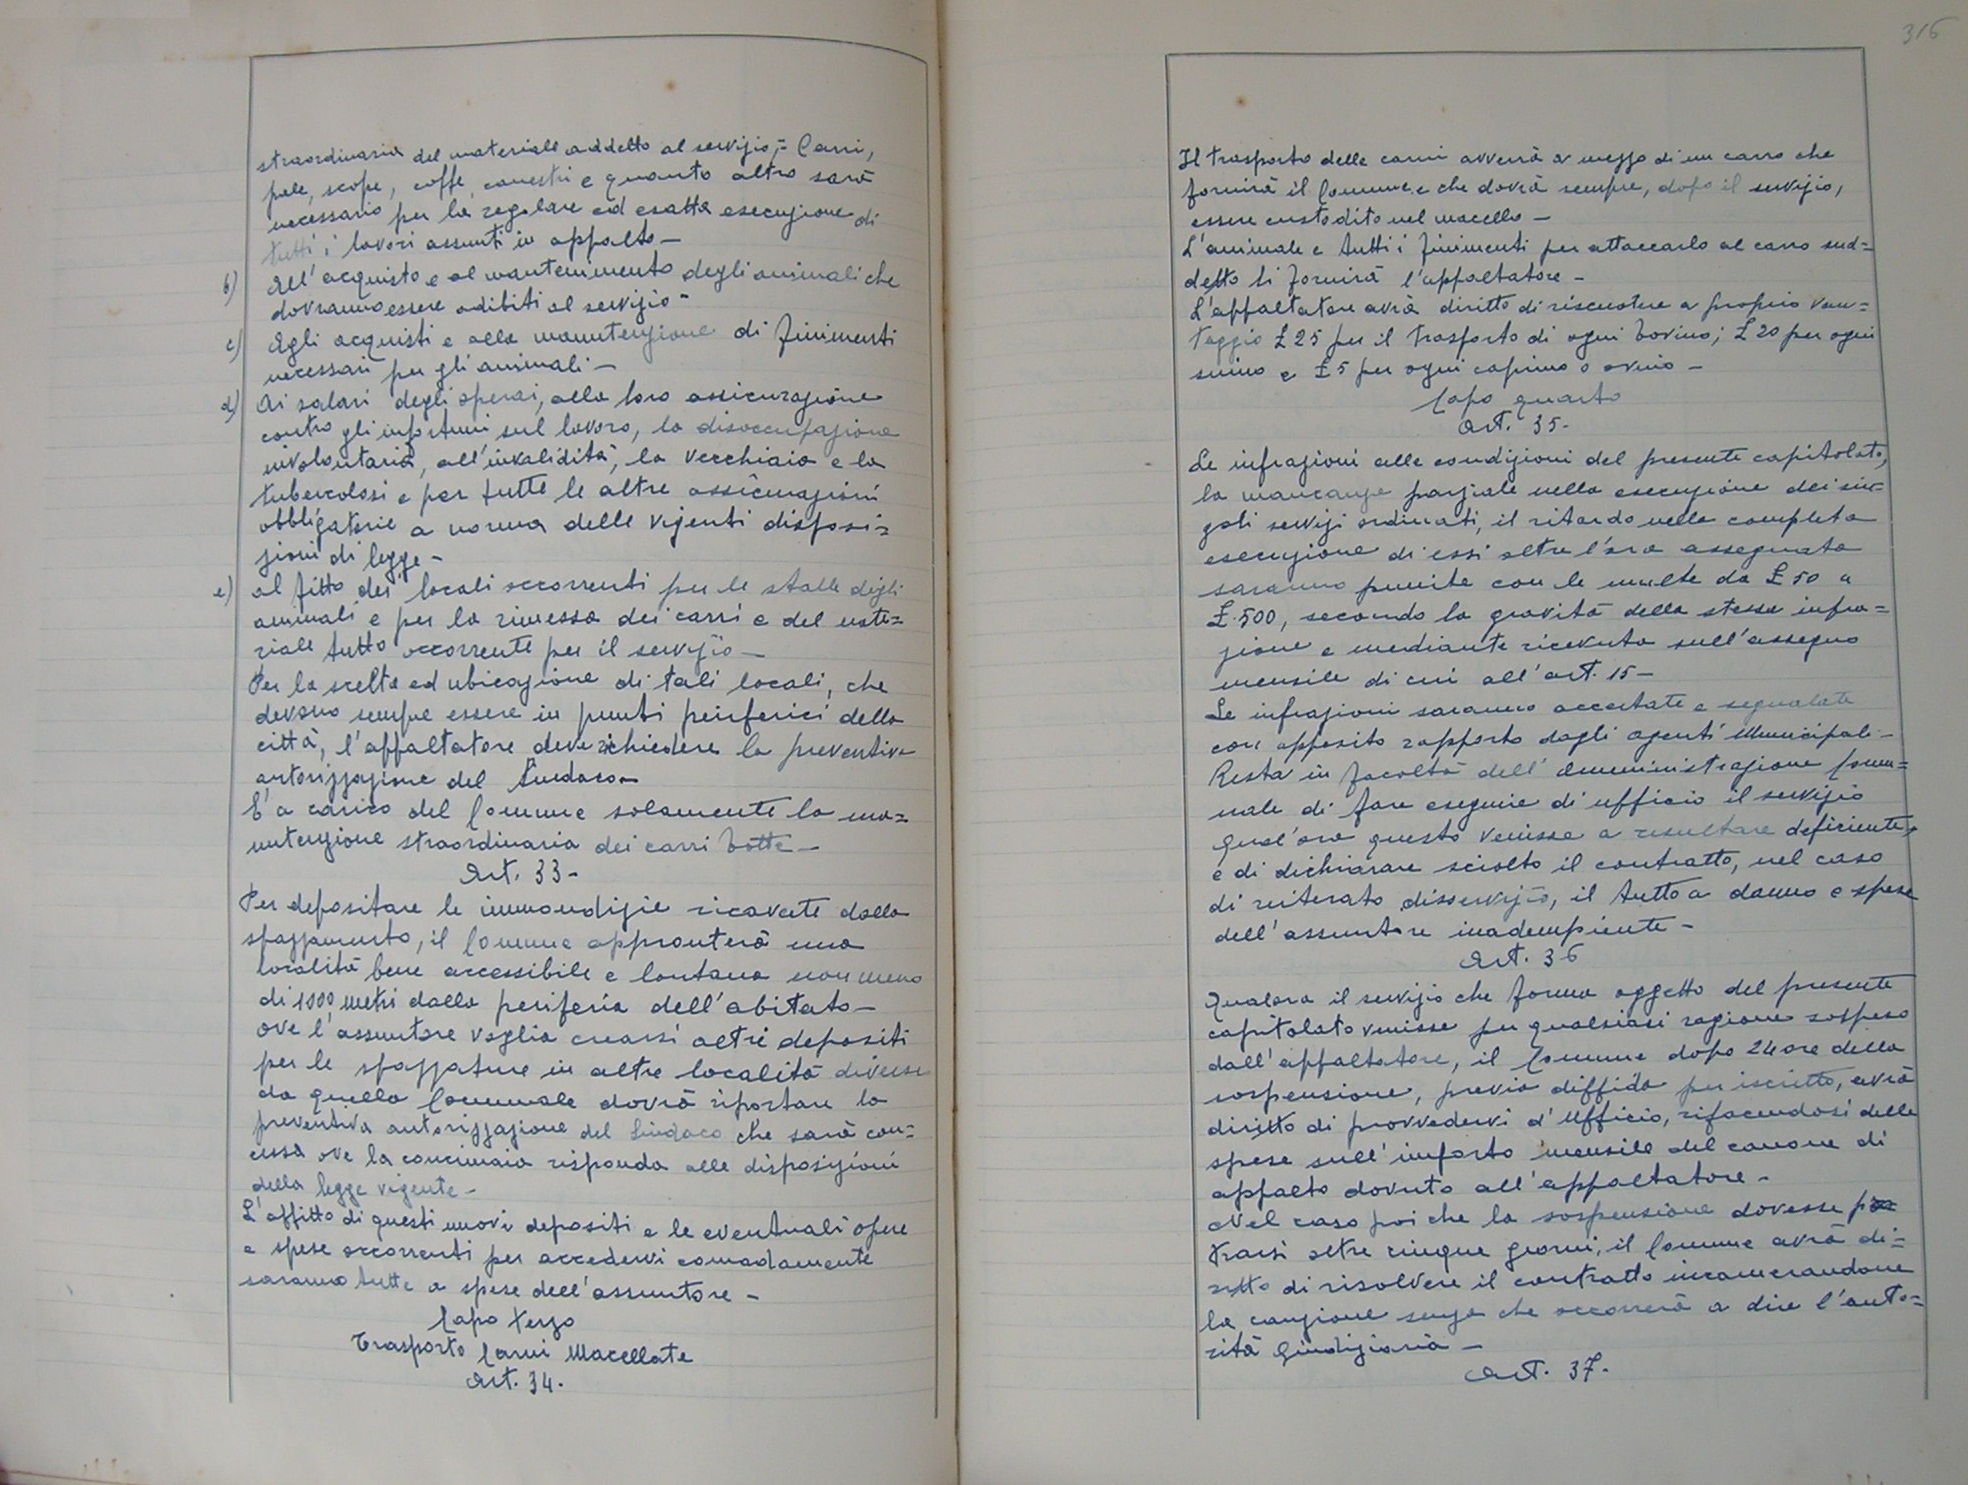 straordinaria del materiale addetto al servizio,= Carri,
pale, scope, coffe, canestri e quanto altro sarà
necessario per la regolare ed esatta esecuzione di
tutti i lavori assunti in appalto—
b) All'acquisto e al mantenimento degli animali che
dovranno essere adibiti al servizio-
c) Agli acquisti e alla manutenzione di finimenti
necessari per gli animali—
d) Ai salari degli operai, alla loro assicurazione
contro gli infortuni sul lavoro, la disoccupazione
involontaria, all'invalidità, la vecchiaia e la
tubercolosi e per tutte le altre assicurazioni
obbligatorie a norma delle vigenti disposi=
zioni di legge—
e) al fitto dei locali occorrenti per le stalle degli
animali e per la rimessa dei carri e del mate=
riale tutto occorrente per il servizio—
Per la scelta ed ubicazione di tali locali, che
devono sempre essere in punti periferici della
città, l'appaltatore deve richiedere la preventiva
autorizzazione del Sindaco—
E' a carico del Comune solamente la ma=
nutenzione straordinaria dei carri botte—
Art. 33-
Per depositare le immondizie ricavate dallo
spazzamento, il Comune appronterà una
località bene accessibile e lontana non meno
di 1000 metri dalla periferia dell'abitato—
ove l'assuntore voglia crearsi altri depositi
per le spazzature in altre località diverse
da quella Comunale dovrà riportare la
preventiva autorizzazione del Sindaco che sarà con=
cessa ove la concimaia risponda alle disposizioni
della legge vigente-
L'affitto di questi nuovi depositi e le eventuali opere
e spese occorrenti per accedervi comodamente
saranno tutte a spese dell'assuntore—
Capo Terzo
Trasporto Carni Macellate
Art. 34.
316
Il trasporto delle carni avverrà a mezzo di un carro che
fornirà il Comune e che dovrà sempre, dopo il servizio,
essere custodito nel macello—
L'animale e tutti i finimenti per attaccarlo al carro sud=
detto li fornirà l'appaltatore-
L'appaltatore avrà diritto di riscuotere a proprio van=
taggio £ 25 per il trasporto di ogni bovino; £ 20 per ogni
suino e £ 5 per ogni caprino o ovino—
Capo quarto
Art. 35-
Le infrazioni alle condizioni del presente capitolato,
la mancanza parziale nella esecuzione dei sin=
goli servizi ordinati, il ritardo nella completa
esecuzione di essi oltre l'ora assegnata
saranno punite con le multe da £ 50 a
£. 500, secondo la gravità della stessa infra=
zione e mediante ricevuta sull'assegno
mensile di cui all'art. 15—
Le infrazioni saranno accertate e segnalate
con apposito rapporto dagli agenti Municipali—
Resta in facoltà dell'Amministrazione Comu=
nale di fare eseguire di ufficio il servizio
qual'ora questo venisse a risultare deficiente,
e di dichiarare sciolto il contratto, nel caso
di reiterato disservizio, il tutto a danno e spese
dell'assuntore inadempiente—
Art. 36
Qualora il servizio che forma oggetto del presente
capitolato venisse per qualsiasi ragione sospeso
dall'appaltatore, il Comune dopo 24 ore della
sospensione, previa diffida per iscritto, avrà
diritto di provvedervi d'Ufficio, rifacendosi delle
spese sull'importo mensile del canone di
appalto dovuto all'appaltatore-
Nel caso poi che la sospensione dovesse
trarsi oltre cinque giorni, il Comune avrà di=
ritto di risolvere il contratto incamerandone
la cauzione senza che occorrerà a dire l'auto=
rità Giudiziaria—
Art. 37.